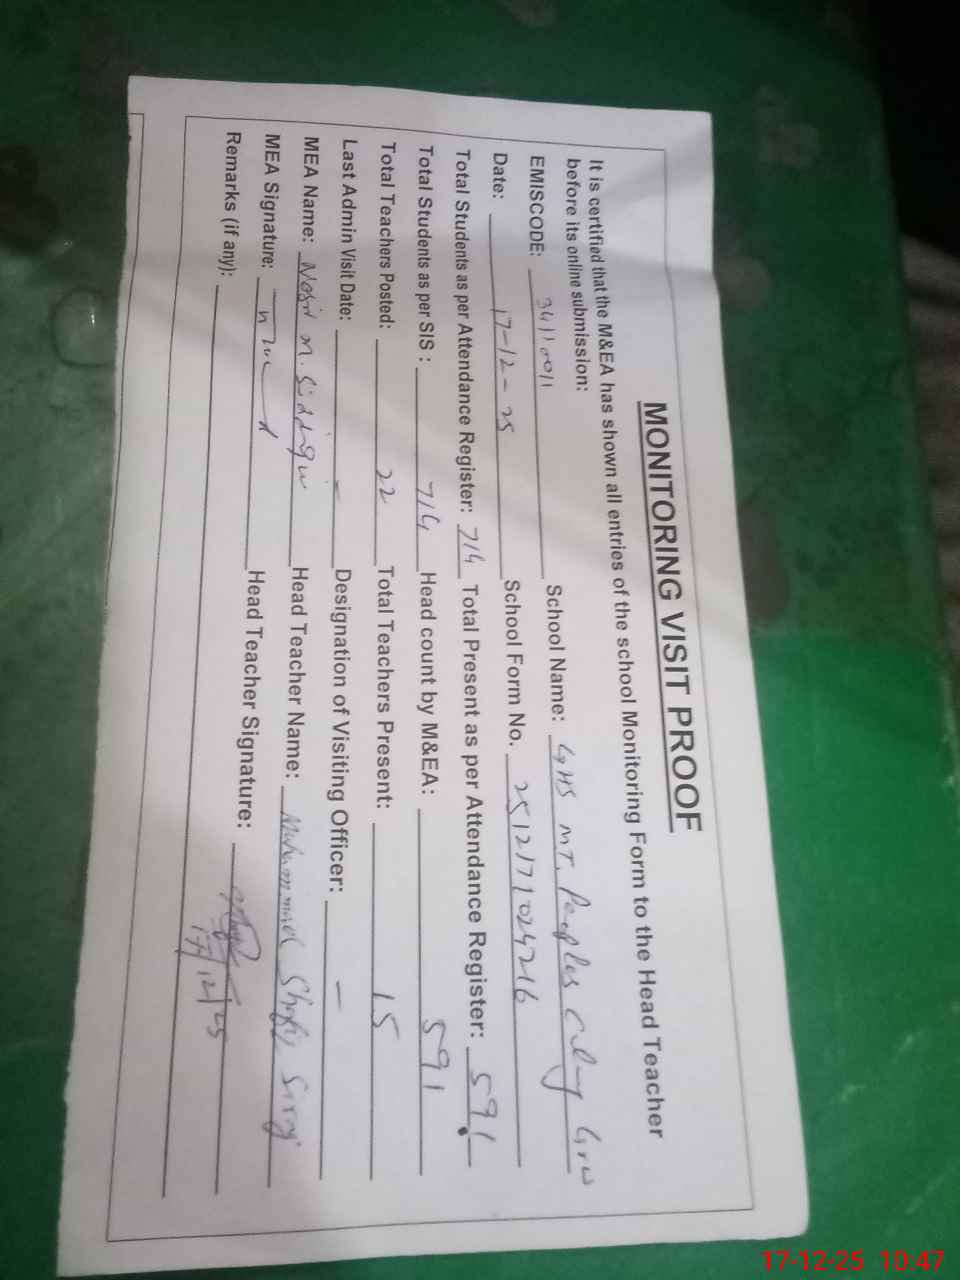 MONITORING VISIT PROOF
It is certified that the M&EA has shown all entries of the school Monitoring Form to the Head Teacher
before its online submission:
EMISCODE: 34110011 School Name: GHS MT. Peoples Colony Grw
Date: 17-12-25 School Form No. 2512171024216
Total Students as per Attendance Register: 714 Total Present as per Attendance Register: 591
Total Students as per SIS : 714 Head count by M&EA: 591
Total Teachers Posted: 22 Total Teachers Present: 15
Last Admin Visit Date: - Designation of Visiting Officer: -
MEA Name: M. Siddiqui Head Teacher Name: Muhammad Shafiq
MEA Signature: Head Teacher Signature:
17/12/25
Remarks (if any):
17-12-25 10:47